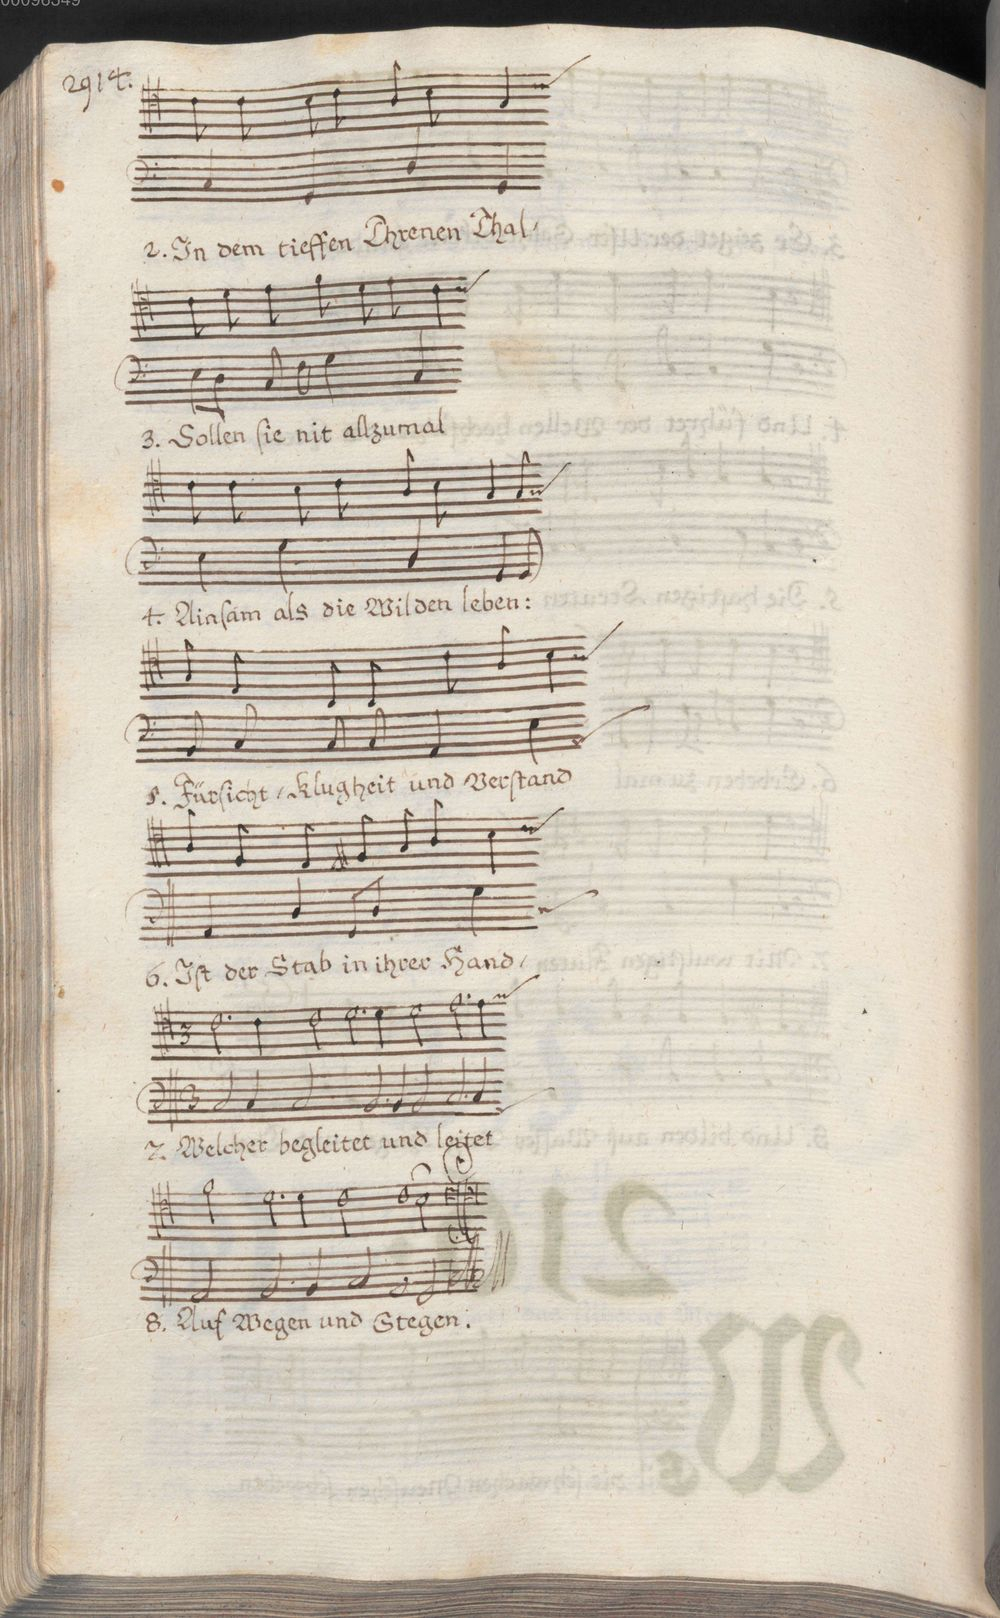 00098349
2914.
2. In dem tieffen Threnen Thal/
3. Sollen sie nit allzumal
4. Ainsam als die Wilden leben:
5. Fürsicht/ Klugheit und Verstand
3
3
6. Ist der Stab in ihrer Hand/
7. Welcher begleitet und leitet
8. Auf Wegen und Stegen: